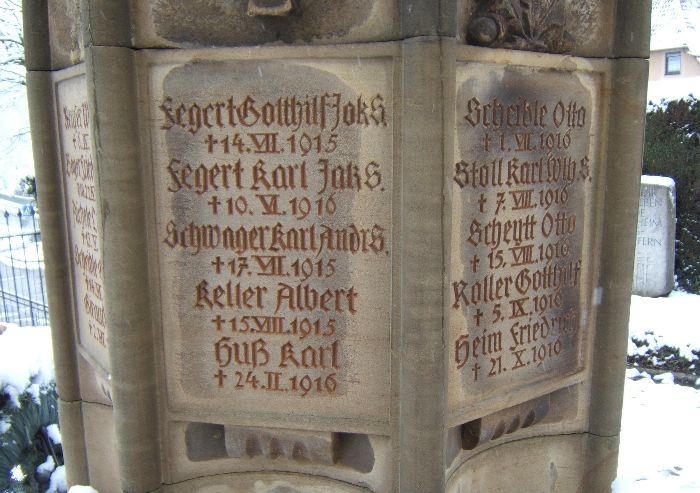 Fegert Gotthilf Jak S.
† 14. VII. 1915
Fegert Karl Jak S.
† 10. VI. 1916
Schwager Karl Andr S.
† 17. VII. 1915
Keller Albert
† 15. VIII. 1915
Huß Karl
† 24. II. 1916
Scheible Otto
† 1. VII. 1916
Stoll Karl Wlh. S.
† 7. VIII. 1916
Scheytt Otto
† 15. VIII. 1916
Koller Gotthilf
† 5. IX. 1916
Heim Friedrich
† 21. X. 1916